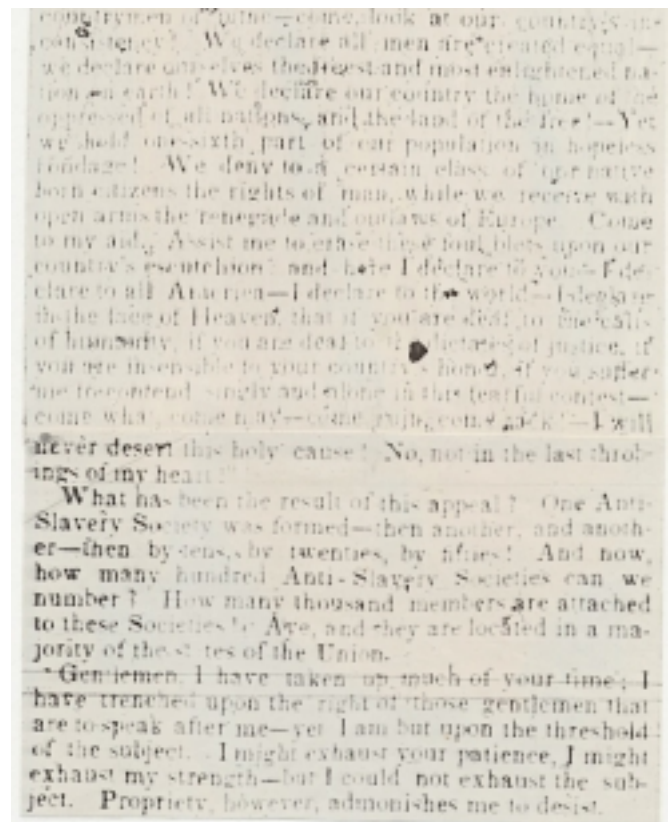 countrymen of mine—come, look at our country's in-
consistency! We declare all men are created equal—
we declare ourselves the freest and most enlightened na-
tion on earth! We declare our country the home of the
oppressed of all nations, and the land of the free!—Yet
we hold one-sixth part of our population in hopeless
bondage! We deny to a certain class of our native
born citizens the rights of man, while we receive with
open arms the renegade and outlaws of Europe. Come
to my aid. Assist me to erase these foul blots upon our
country's escutchion! and here I declare to you—I de-
clare to all America—I declare to the world—I declare
in the face of Heaven, that if you are deaf to the calls
of humanity, if you are deaf to the dictates of justice, if
you are insensible to your country's honor, if you suffer
me to contend singly and alone in this fearful contest—
come what come may—come ruin, come rack!—I will
never desert this holy cause! No, not in the last throb-
ings of my heart!"
What has been the result of this appeal? One Anti-
Slavery Society was formed—then another, and anoth-
er—then by tens, by twenties, by fifties! And now,
how many hundred Anti-Slavery Societies can we
number? How many thousand members are attached
to these Societies? Aye, and they are located in a ma-
jority of the states of the Union.
Gentlemen, I have taken up much of your time; I
have trenched upon the right of those gentlemen that
are to speak after me—yet I am but upon the threshold
of the subject. I might exhaust your patience, I might
exhaust my strength—but I could not exhaust the sub-
ject. Propriety, however, admonishes me to desist.